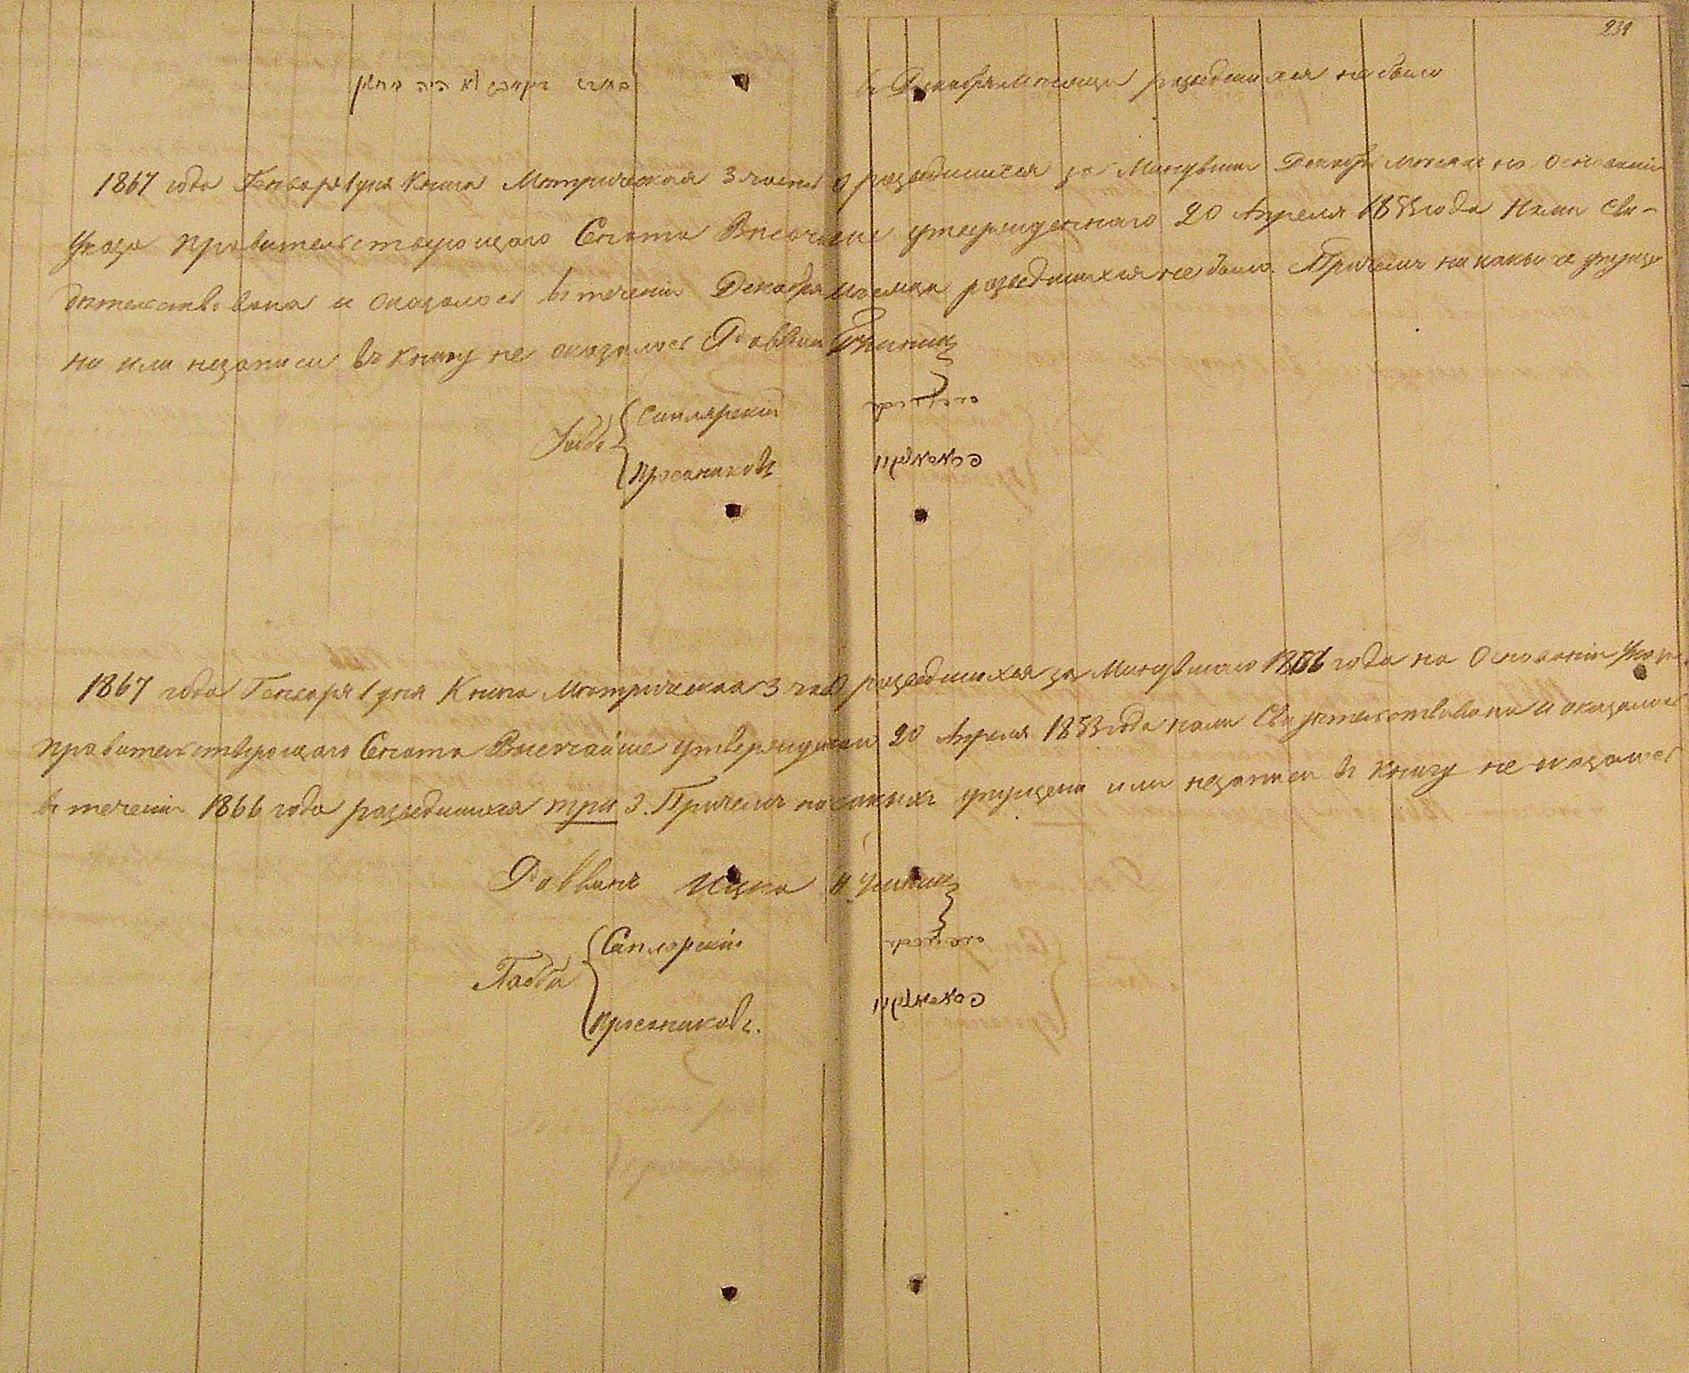 239
בחדש דעקאבר לא היה מתגרש
въ Декабрѣ мѣсяцѣ разведшихся не было
1867 года Генваря 1 дня Книга Метрическая 3 часть о разведшихся за Минувший Декабрь мѣсяцъ на Основаніи
Указа Правительствующаго Сената Высочайше утвержденнаго 20 Апреля 1853 года Нами Сви-
дѣтельствована и оказалось въ теченіи Декабря мѣсяца разведшихся не было Причемъ никакихъ упуще
ни или незаписи въ Книгу не оказалось Раввинъ
Габе Саплярскій
Красниковъ
1867 года Генваря 1 дня Книга Метрическая 3 час О разведшихся за Минувшаго 1866 года на Основаніи Указа
Правительствующаго Сената Высочайше утвержден 20 Апреля 1853 года нами Свидѣтельствована и оказалось
въ теченіи 1866 года разведшихся три 3. Причемъ никакихъ упущени или незаписи въ Книгу не оказалось
Раввинъ Ицко
Габбе Саплярскій
Красниковъ.